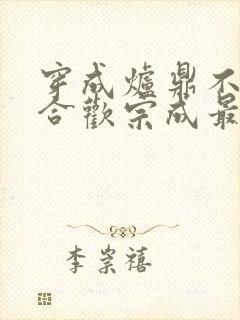 穿成爐鼎不
合歡宗成最
李崇禧